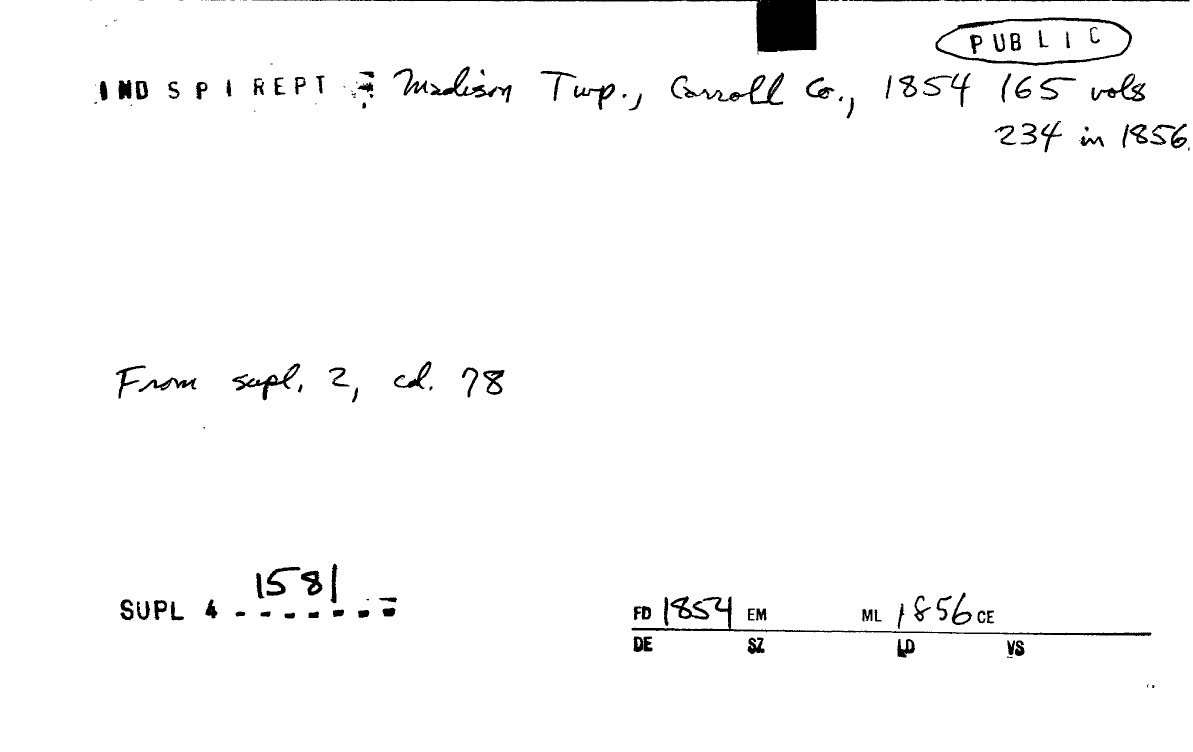 PUBLIC
IND SPI REPT - Madison Twp., Carroll Co., 1854 165 vols
234 in 1856.
From supl. 2, cd. 78
1581
SUPL 4 - - - - - - -
FD 1854 EM ML 1856 CE
DE SZ LD VS